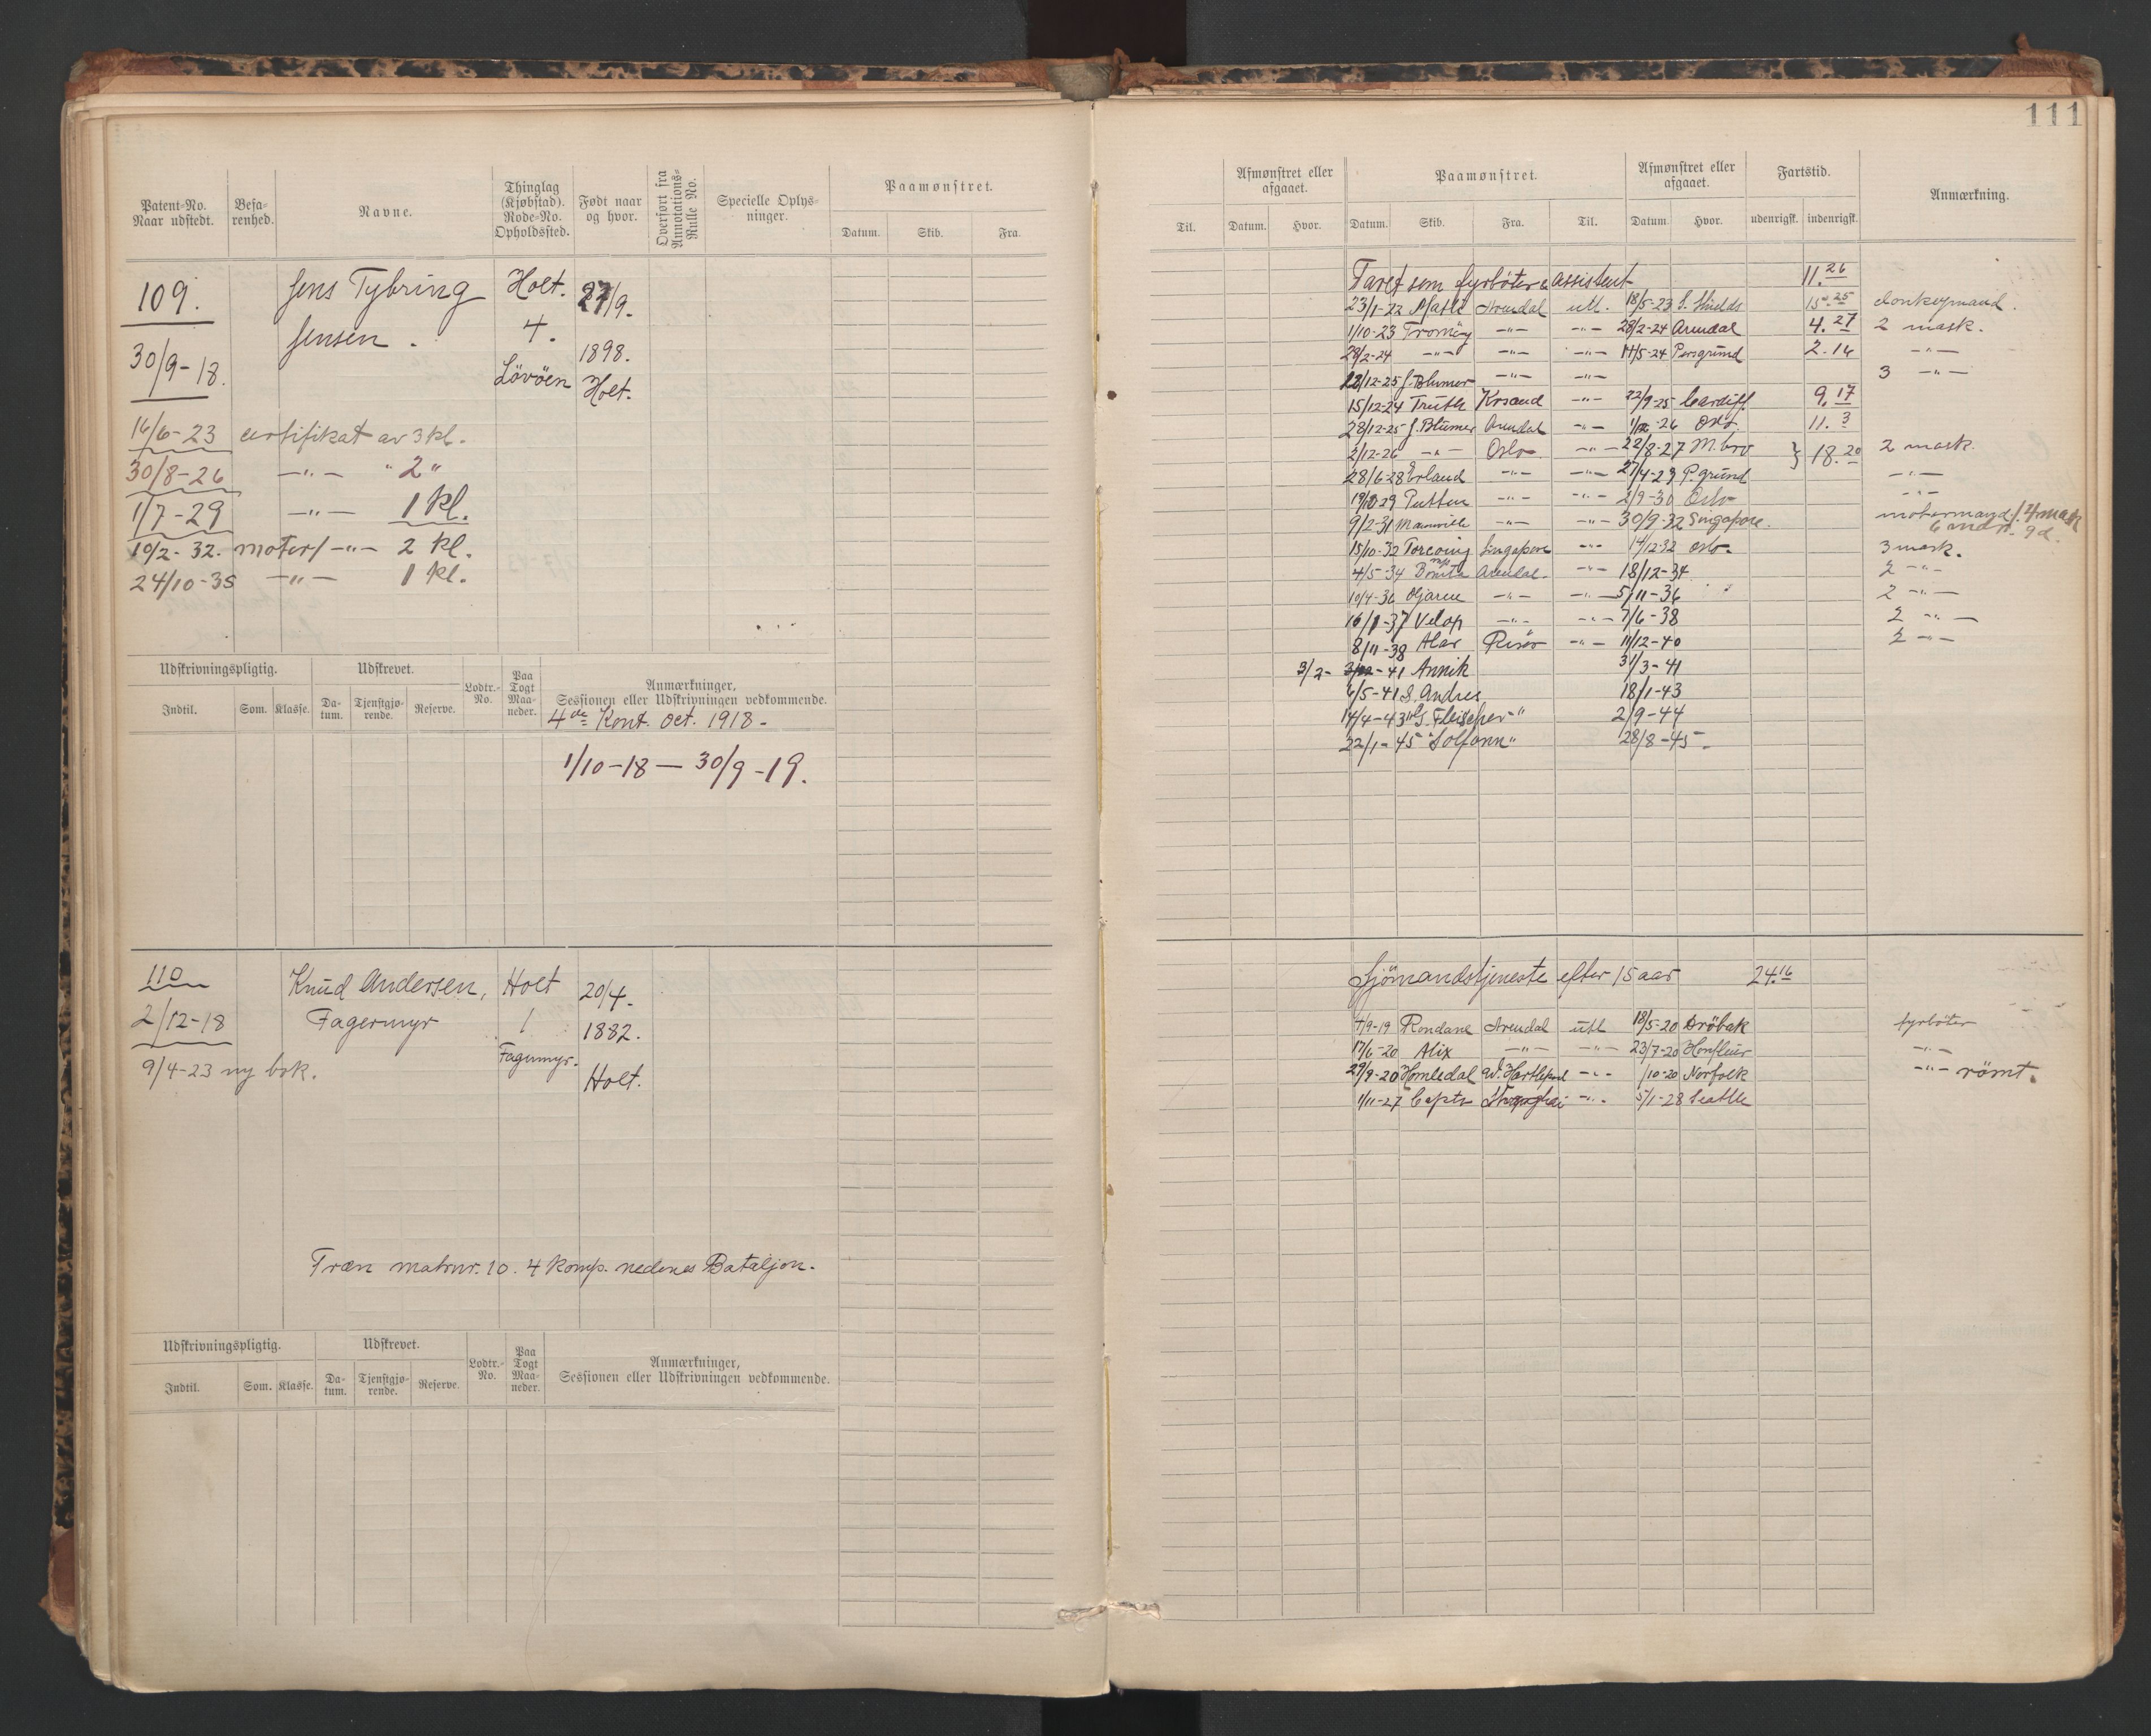 111
Patent-No. Naar udstedt.
Befarenhed.
Navne.
Thinglag (Kjøbstad). Rode-No. Opholdssted.
Født naar og hvor.
Overført fra Annotations-Rulle No.
Specielle Oplysninger.
Paamønstret.
Datum. Skib. Fra.
109.
30/9-18.
Jens Tybring
Jensen.
Holt.
4.
Lövöen
27/9.
1898.
Holt.
16/6-23 certifikat av 3 kl.
30/8-26 -"- " 2 "
1/7-29 -"- 1 kl.
10/2-32. motor/-"- 2 kl.
24/10-35 -"- 1 kl.
Udskrivningspligtig. Udskrevet. Lodtr.-No. Paa Togt Maaneder. Anmærkninger, Sessionen eller Udskrivningen vedkommende.
Indtil. Som. Klasse. Datum. Tjenstgjørende. Reserve.
4de Kont. Oct. 1918.-
1/10-18 — 30/9-19.
110
2/12-18
9/4-23 ny bok.
Knud Andersen,
Fagermyr
Holt
1
Fagermyr.
20/4-
1882.
Holt.
Træn matrnr. 10. 4 Komp. nedenes Bataljon.
Udskrivningspligtig. Udskrevet. Lodtr.-No. Paa Togt Maaneder. Anmærkninger, Sessionen eller Udskrivningen vedkommende.
Indtil. Som. Klasse. Datum. Tjenstgjørende. Reserve.
Afmønstret eller afgaaet. Paamønstret. Afmønstret eller afgaaet. Fartstid. Anmærkning.
Til. Datum. Hvor. Datum. Skib. Fra. Til. Datum. Hvor. udenrigsk. indenrigsk.
Faret som fyrböter & assistent 11.26
23/1-22 Arendal utl. 18/5-23 S. Shields 15.25 donkeymand.
1/10-23 Tromöy -"- -"- 28/2-24 Arendal 4.27 2 mask.
28/2-24 -"- -"- -"- 14/5-24 Porsgrund 2.16 -"-
28/12-25 J. Blumer -"- -"- 3 -"-
15/12-24 Truth Krsand -"- 22/9-25 Cardiff 9.17
28/12-25 J. Blumer Arendal -"- -26 Oslo. 11.3
2/12-26 -"- Oslo -"- 22/8-27 M.bro } 18.20 2 mask.
28/6-28 Erland -"- -"- 27/4-29 P.grund -"-
29 -"- -"- 2/9-30 Oslo -"-
9/2-31 -"- -"- 30/9-32 Singapore. motormand/4 mask
6 mdr. 9 d.
15/10-32 Singapore -"- 14/12-32 Oslo. 3 mask.
4/5-34 Bonita Arendal -"- 18/12-34 2 -"-
10/4-36 -"- -"- 5/11-36 2 -"-
16/1-37 Velox -"- -"- 7/6-38 2 -"-
8/11-38 Alar Risör -"- 11/12-40 2 -"-
3/2- -41 Annik 31/3-41
6/5-41 S. Andres 18/1-43
14/4-43 "G. Fleischer" 2/9-44
22/1-45 "Solfonn" 28/8-45-
Sjömandstjeneste efter 15 aar 24.16
4/9-19 Rondane Arendal utl 18/5-20 Dröbak fyrböter
17/6-20 Alix -"- -"- 23/7-20 Honfleur -"-
29/9-20 Homledal W. Hartlepool -"- /10-20 Norfolk -"- römt.
1/11-27 Shanghai -"- 5/1-28 Seattle